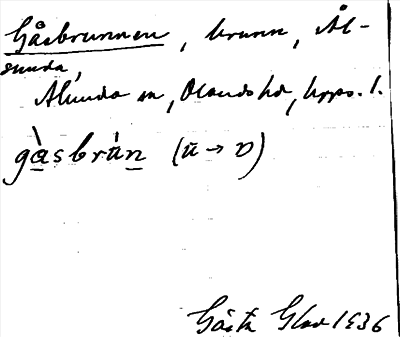 Gåsbrunnen, brunn, Ål-
sunda,
Alunda sn, Olands hd, Upps. l.
gàsbrún (u → ʋ)
Gösta Glad 1936